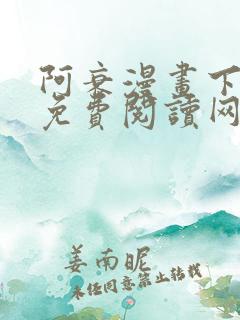 阿衰漫畫下
免費閱讀网
姜南昵
未经同意禁止转载